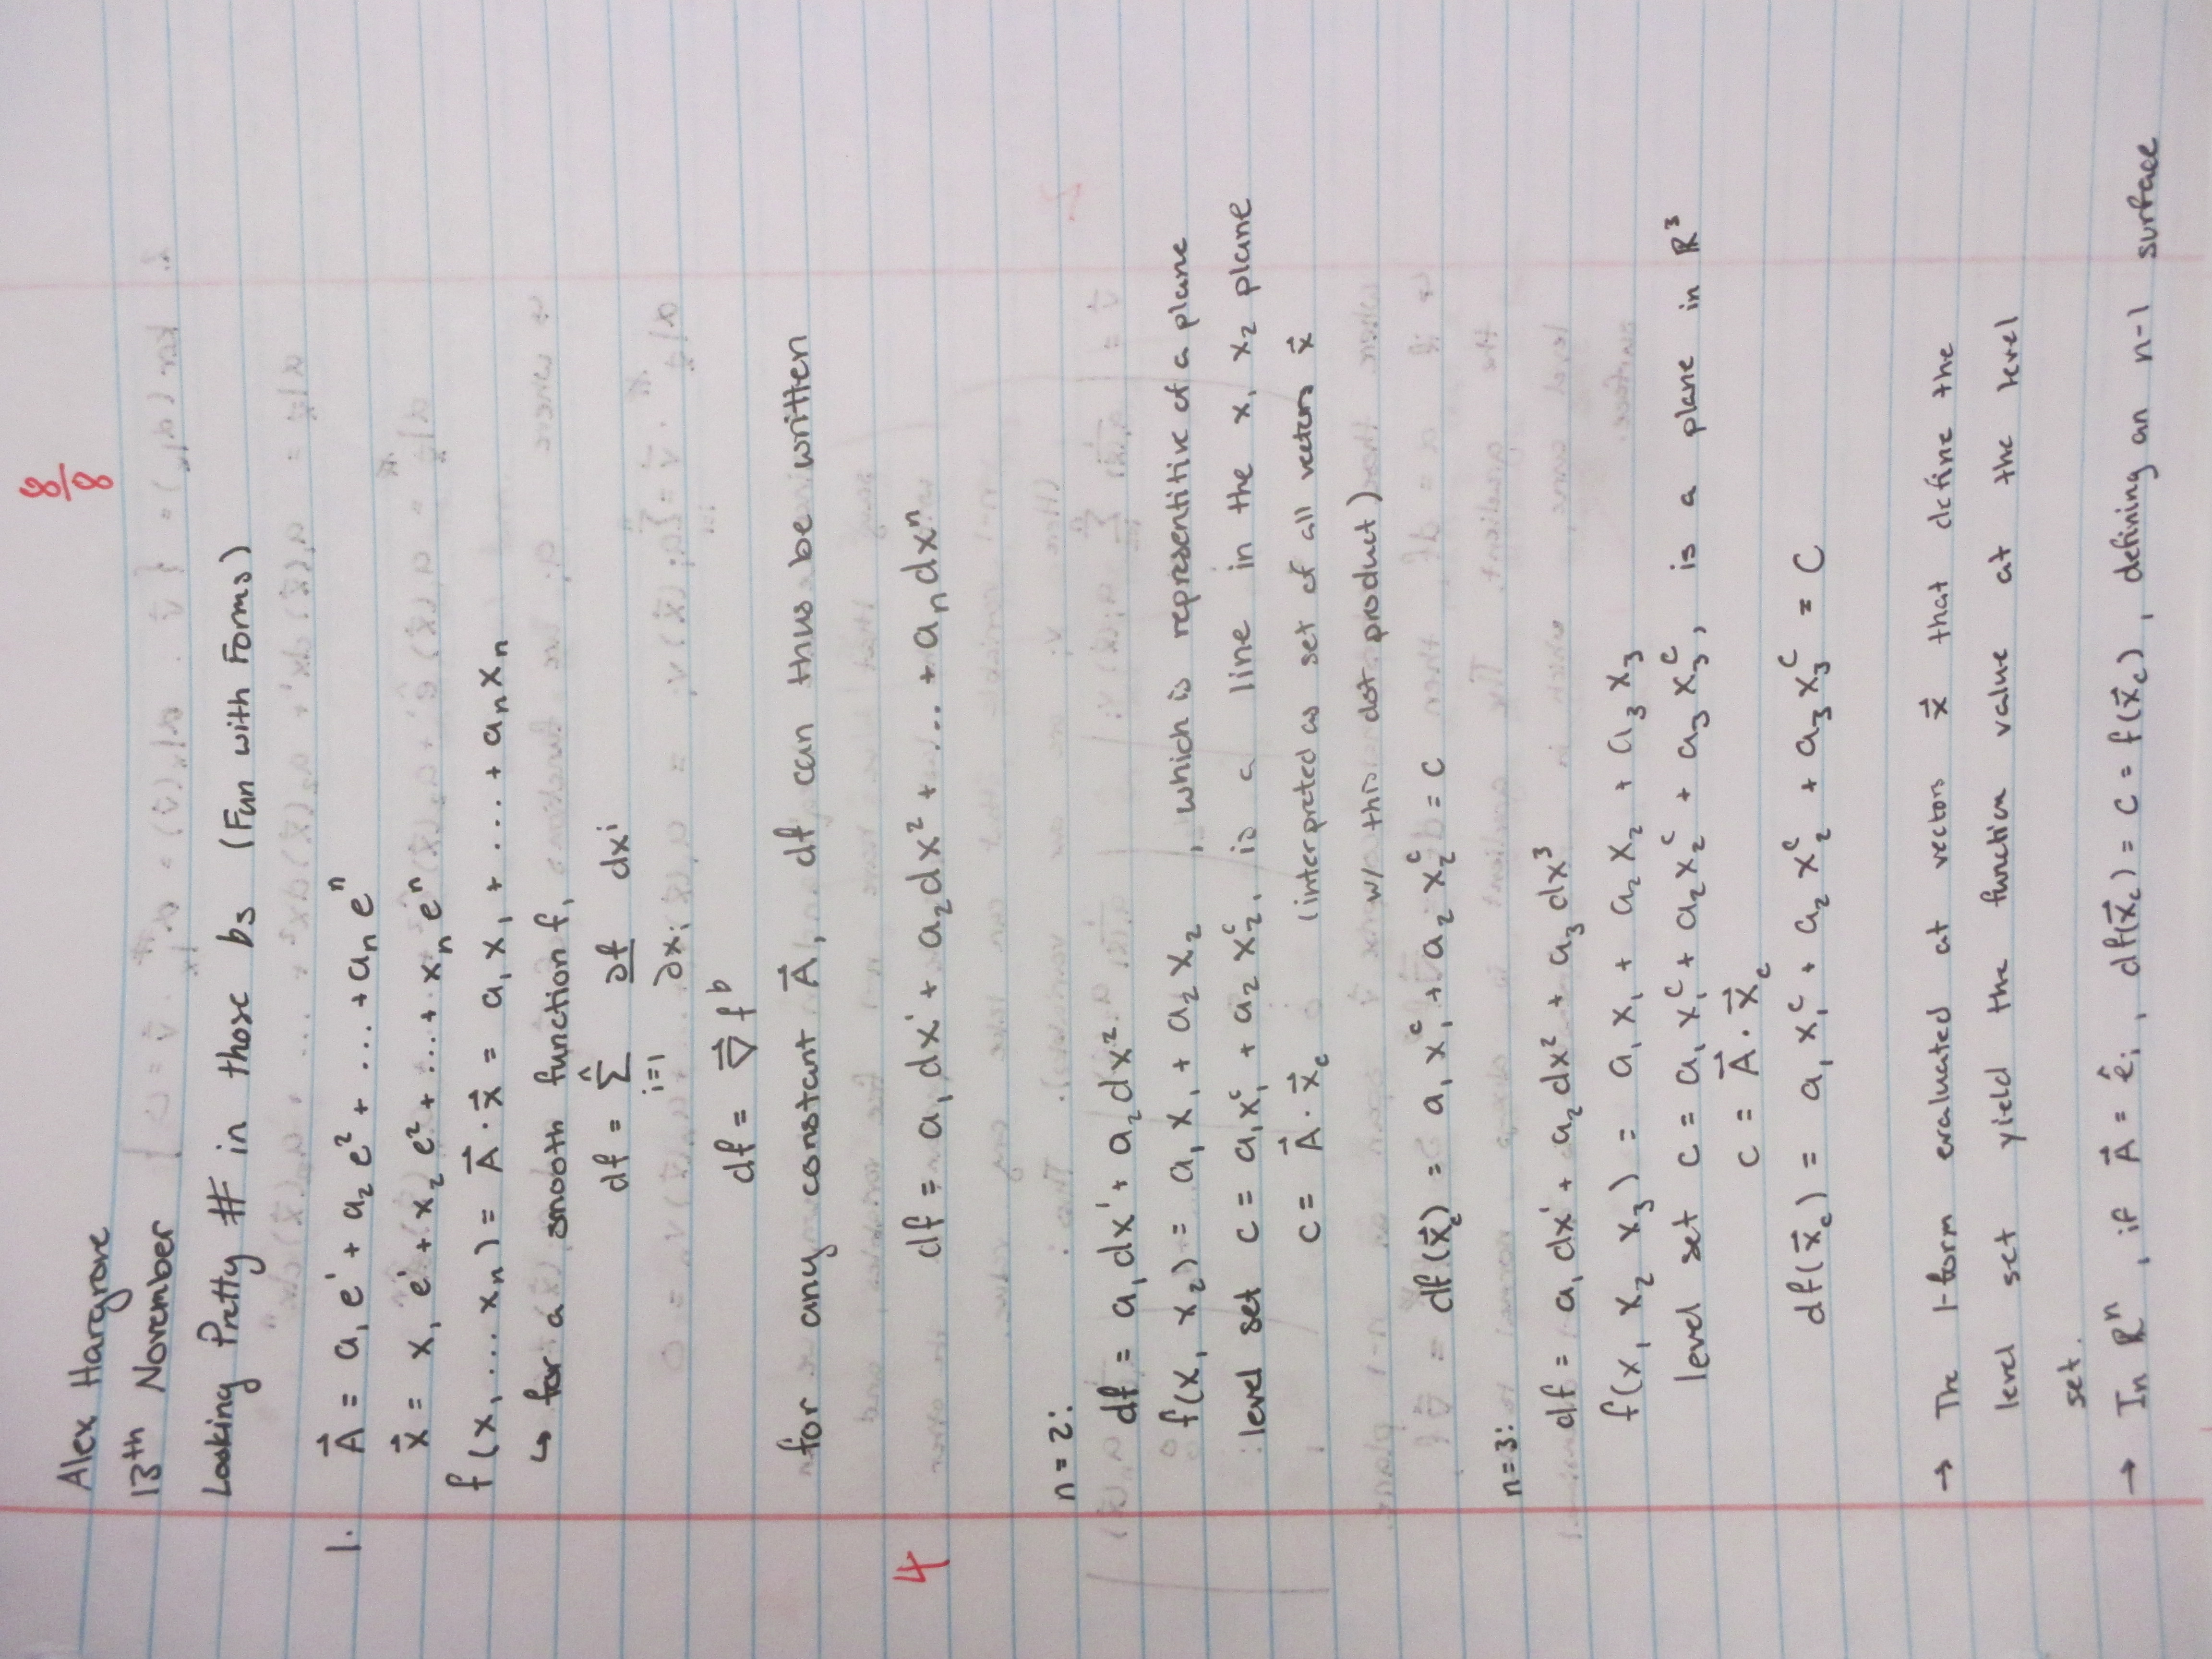 8/8
Alex Hargrove
13th November
Looking Pretty # in those bs (Fun with Forms)
1. A⃗ = a₁e¹ + a₂e² + ... + aₙeⁿ
x⃗ = x₁e¹ + x₂e² + ... + xₙeⁿ
f(x₁ ... xₙ) = A⃗ · x⃗ = a₁x₁ + ... + aₙxₙ
↳ for a smooth function f,
df = Σ^n_{i=1} ∂f/∂xᵢ dxⁱ
df = ∇⃗f^b
for any constant A⃗, df can thus be written
4 df = a₁dx¹ + a₂dx² + ... + aₙdxⁿ
n = 2:
df = a₁dx¹ + a₂dx²
f(x₁ x₂) = a₁x₁ + a₂x₂, which is representitive of a plane
level set c = a₁x₁ᶜ + a₂x₂ᶜ, is a line in the x₁ x₂ plane
c = A⃗ · x⃗_c (interpreted as set of all vectors x⃗
w/ this dot product)
df(x⃗_c) = a₁x₁ᶜ + a₂x₂ᶜ = c
n = 3:
df = a₁dx¹ + a₂dx² + a₃dx³
f(x₁ x₂ x₃) = a₁x₁ + a₂x₂ + a₃x₃
level set c = a₁x₁ᶜ + a₂x₂ᶜ + a₃x₃ᶜ, is a plane in R³
c = A⃗ · x⃗_c
df(x⃗_c) = a₁x₁ᶜ + a₂x₂ᶜ + a₃x₃ᶜ = C
→ The 1-form evaluated at vectors x⃗ that define the
level set yield the function value at the level
set.
→ In Rⁿ, if A⃗ = êᵢ, df(x⃗_c) = c = f(x⃗_c), defining an n-1 surface